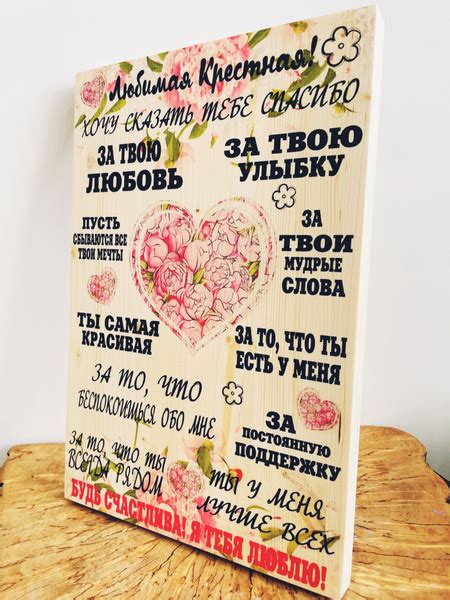 Любимая Крестная!
ХОЧУ СКАЗАТЬ ТЕБЕ СПАСИБО
ЗА ТВОЮ
ЛЮБОВЬ
ЗА ТВОЮ
УЛЫБКУ
ПУСТЬ
СБЫВАЮТСЯ ВСЕ
ТВОИ МЕЧТЫ
ЗА
ТВОИ
МУДРЫЕ
СЛОВА
ТЫ САМАЯ
КРАСИВАЯ
ЗА ТО, ЧТО ТЫ
ЕСТЬ У МЕНЯ
ЗА ТО, ЧТО
БЕСПОКОИШЬСЯ ОБО МНЕ
ЗА
ПОСТОЯННУЮ
ПОДДЕРЖКУ
ЗА ТО, ЧТО ТЫ
ВСЕГДА РЯДОМ
ТЫ У МЕНЯ
ЛУЧШЕ ВСЕХ
БУДЬ СЧАСТЛИВА! Я ТЕБЯ ЛЮБЛЮ!